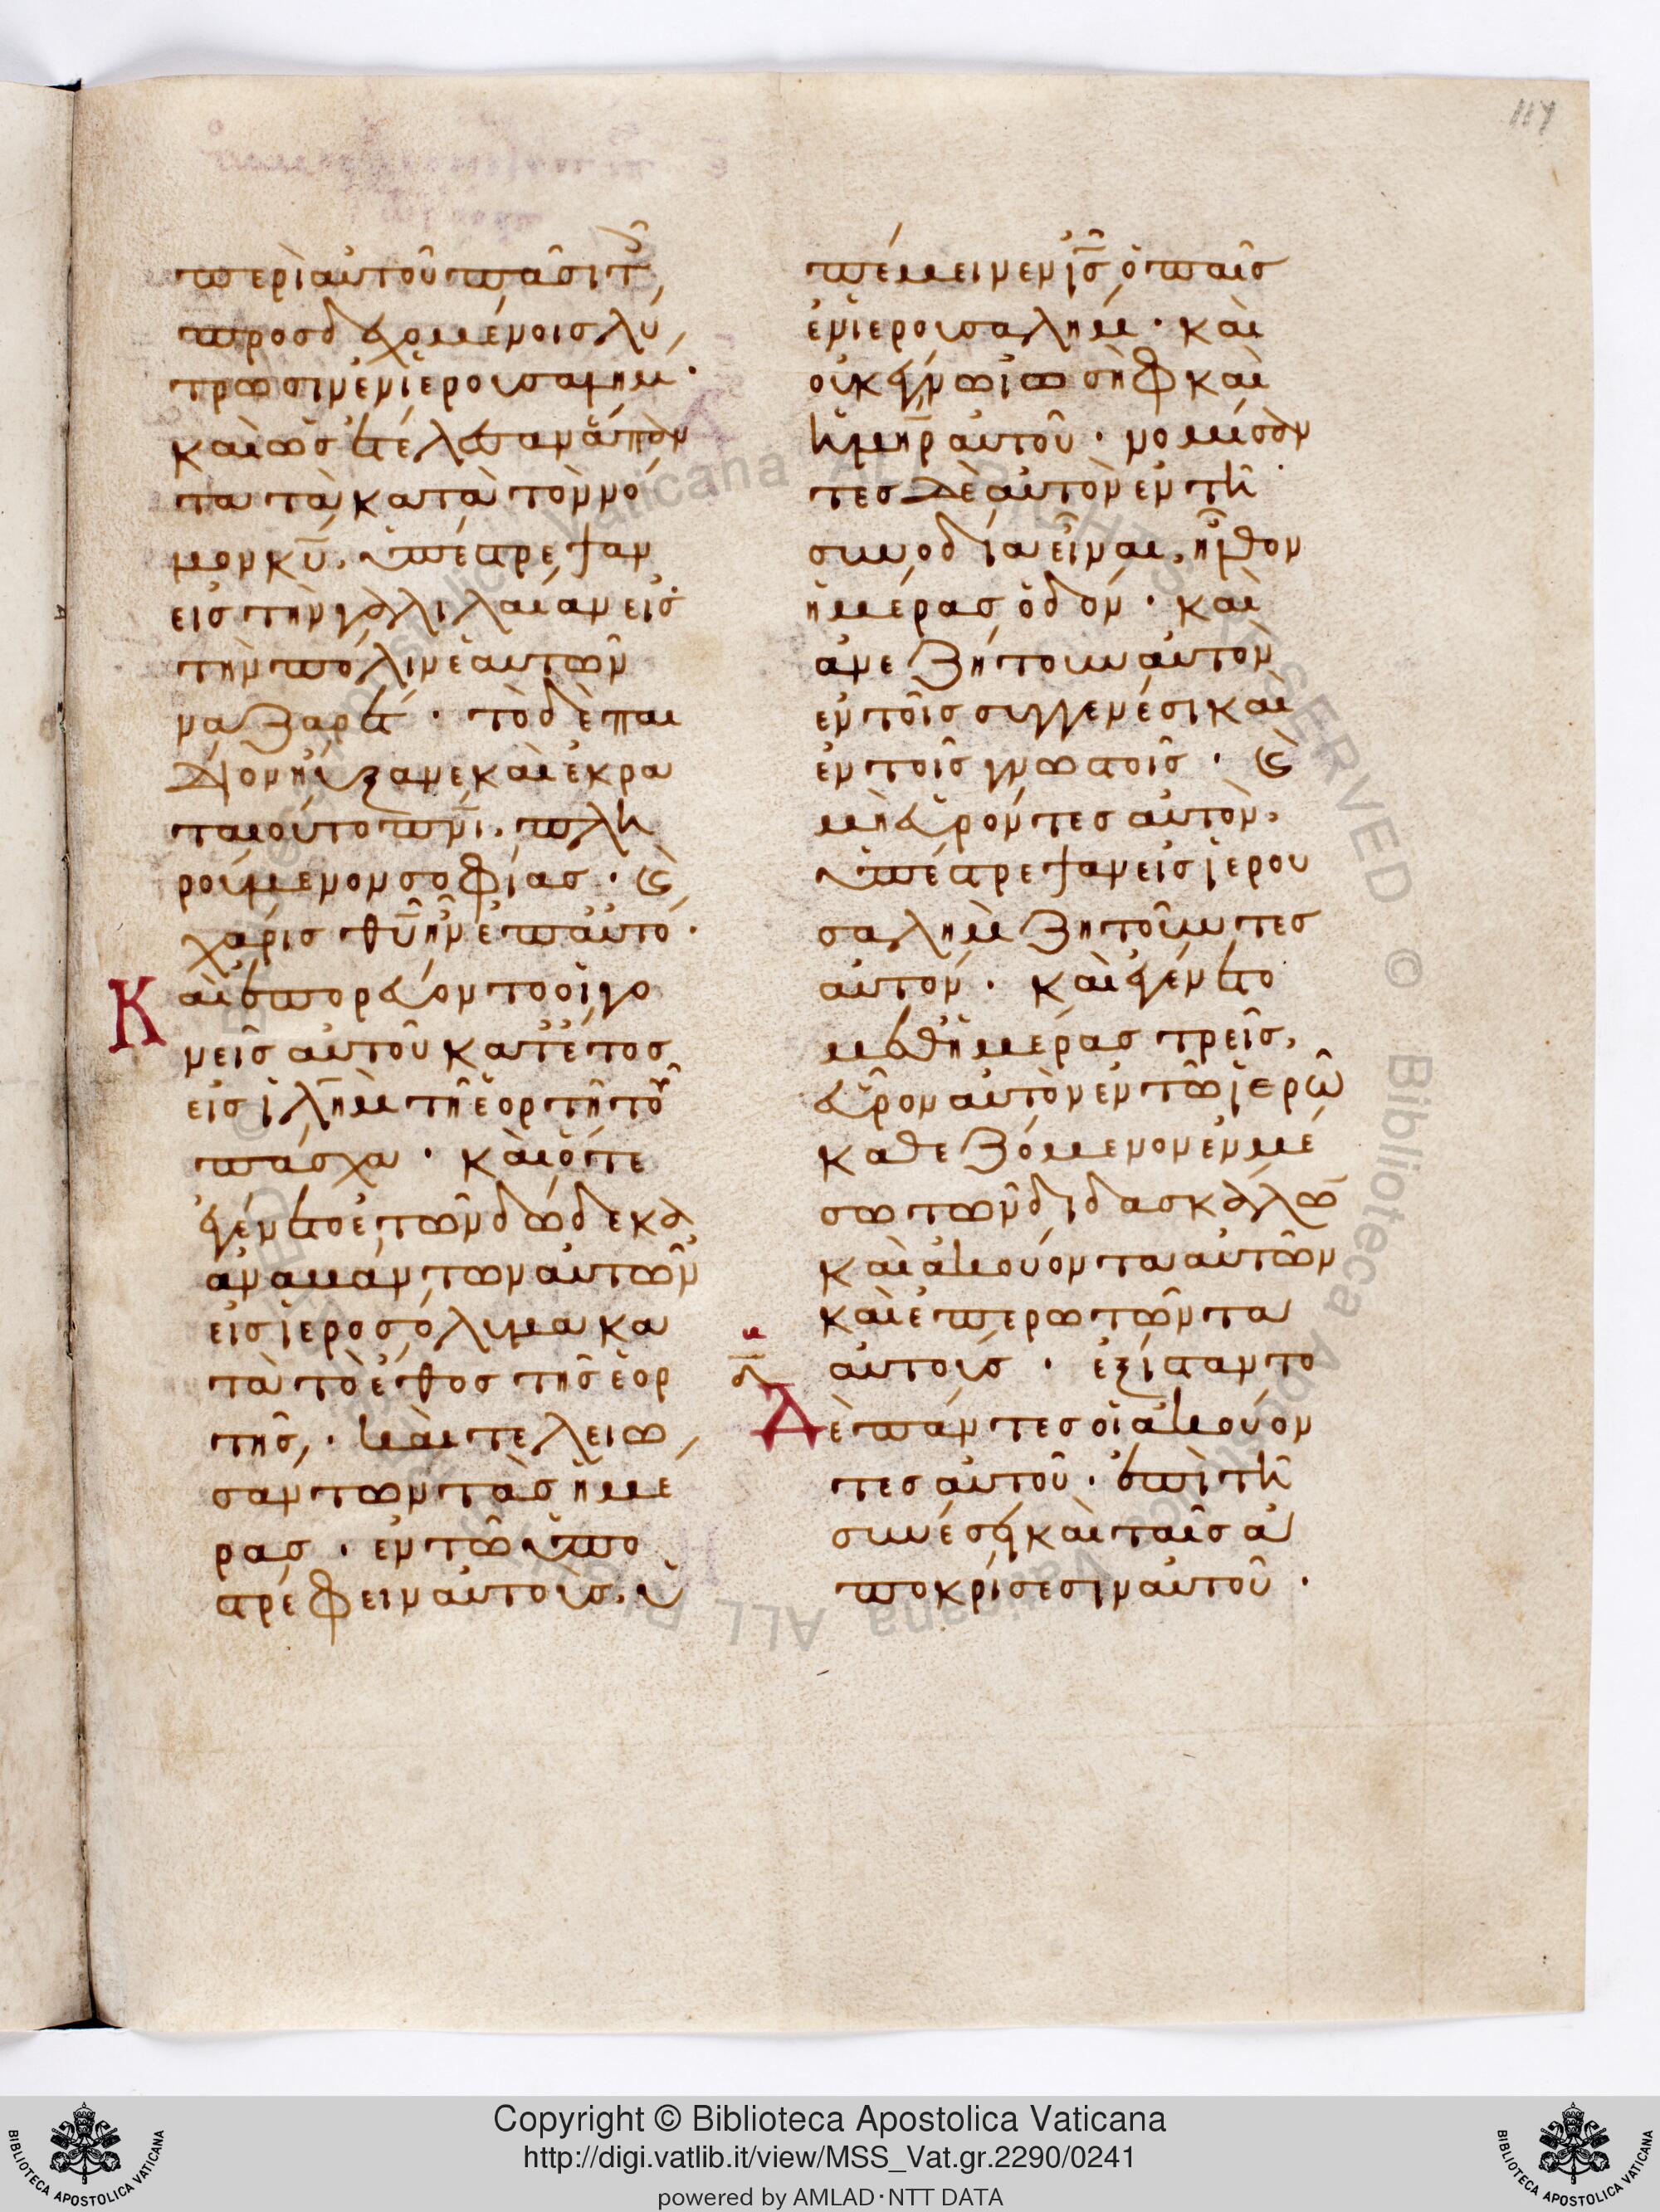 117
περὶ αὐτοῦ πᾶσι τοῖς
προσδεχομένοις λύ
τρωσιν ἐν ἱερουσαλήμ·
καὶ ὡς ἐτέλεσαν ἅπαν
τα τὰ κατὰ τὸν νό
μον κ̅υ̅, ὑπέστρεψαν
εἰς τὴν γαλιλαίαν εἰς
τὴν πόλιν ἑαυτῶν
ναζαρέτ· τὸ δὲ παι
δίον ηὔξανε καὶ ἐκρα
ταιοῦτο π̅ν̅ι̅, πλη
ρούμενον σοφίας· καὶ
χάρις θ̅υ̅ ἦν ἐπ αὐτό·
Καὶ ἐπορεύοντο οἱ γο
νεῖς αὐτοῦ κατ ἔτος
εἰς ἱλ̅η̅μ τῇ ἑορτῇ τοῦ
πάσχα· καὶ ὅτε
ἐγένετο ἐτῶν δώδεκα
ἀναβάντων αὐτῶν
εἰς ἱεροσόλυμα κα
τὰ τὸ ἔθος τῆς ἑορ
τῆς,· καὶ τελειω
σάντων τὰς ἡμέ
ρας· ἐν τῷ ὑπο
στρέφειν αὐτούς, ὑ
πέμεινεν ι̅ς̅ ὁ παῖς
ἐν ἱερουσαλήμ· καὶ
οὐκ ἔγνω ἰωσὴφ καὶ
ἡ μ̅η̅ρ̅ αὐτοῦ· νομίσαν
τες δὲ αὐτὸν ἐν τῇ
συνοδία εἶναι, ἦλθον
ἡμέρας ὁδόν· καὶ
ἀνεζήτουν αὐτὸν
ἐν τοῖς συγγενέσι καὶ
ἐν τοῖς γνωστοῖς· καὶ
μὴ εὑρόντες αὐτὸν,
ὑπέστρεψαν εἰς ἱερου
σαλὴμ ζητοῦντες
αὐτόν· καὶ ἐγένετο
μεθ ἡμέρας τρεῖς,
εὗρον αὐτὸν ἐν τῷ ἱερῷ
καθεζόμενον ἐν μέ
σω τῶν διδασκάλων
καὶ ἀκούοντα αὐτῶν
καὶ ἐπερωτῶντα
αὐτούς· ἐξίσταντο
Δὲ πάντες οἱ ἀκούον
τες αὐτοῦ· ἐπὶ τῇ
συνέσει καὶ ταῖς ἀ
ποκρίσεσιν αὐτοῦ·
Copyright © Biblioteca Apostolica Vaticana
http://digi.vatlib.it/view/MSS_Vat.gr.2290/0241
powered by AMLAD·NTT DATA
BIBLIOTECA APOSTOLICA VATICANA
BIBLIOTECA APOSTOLICA VATICANA